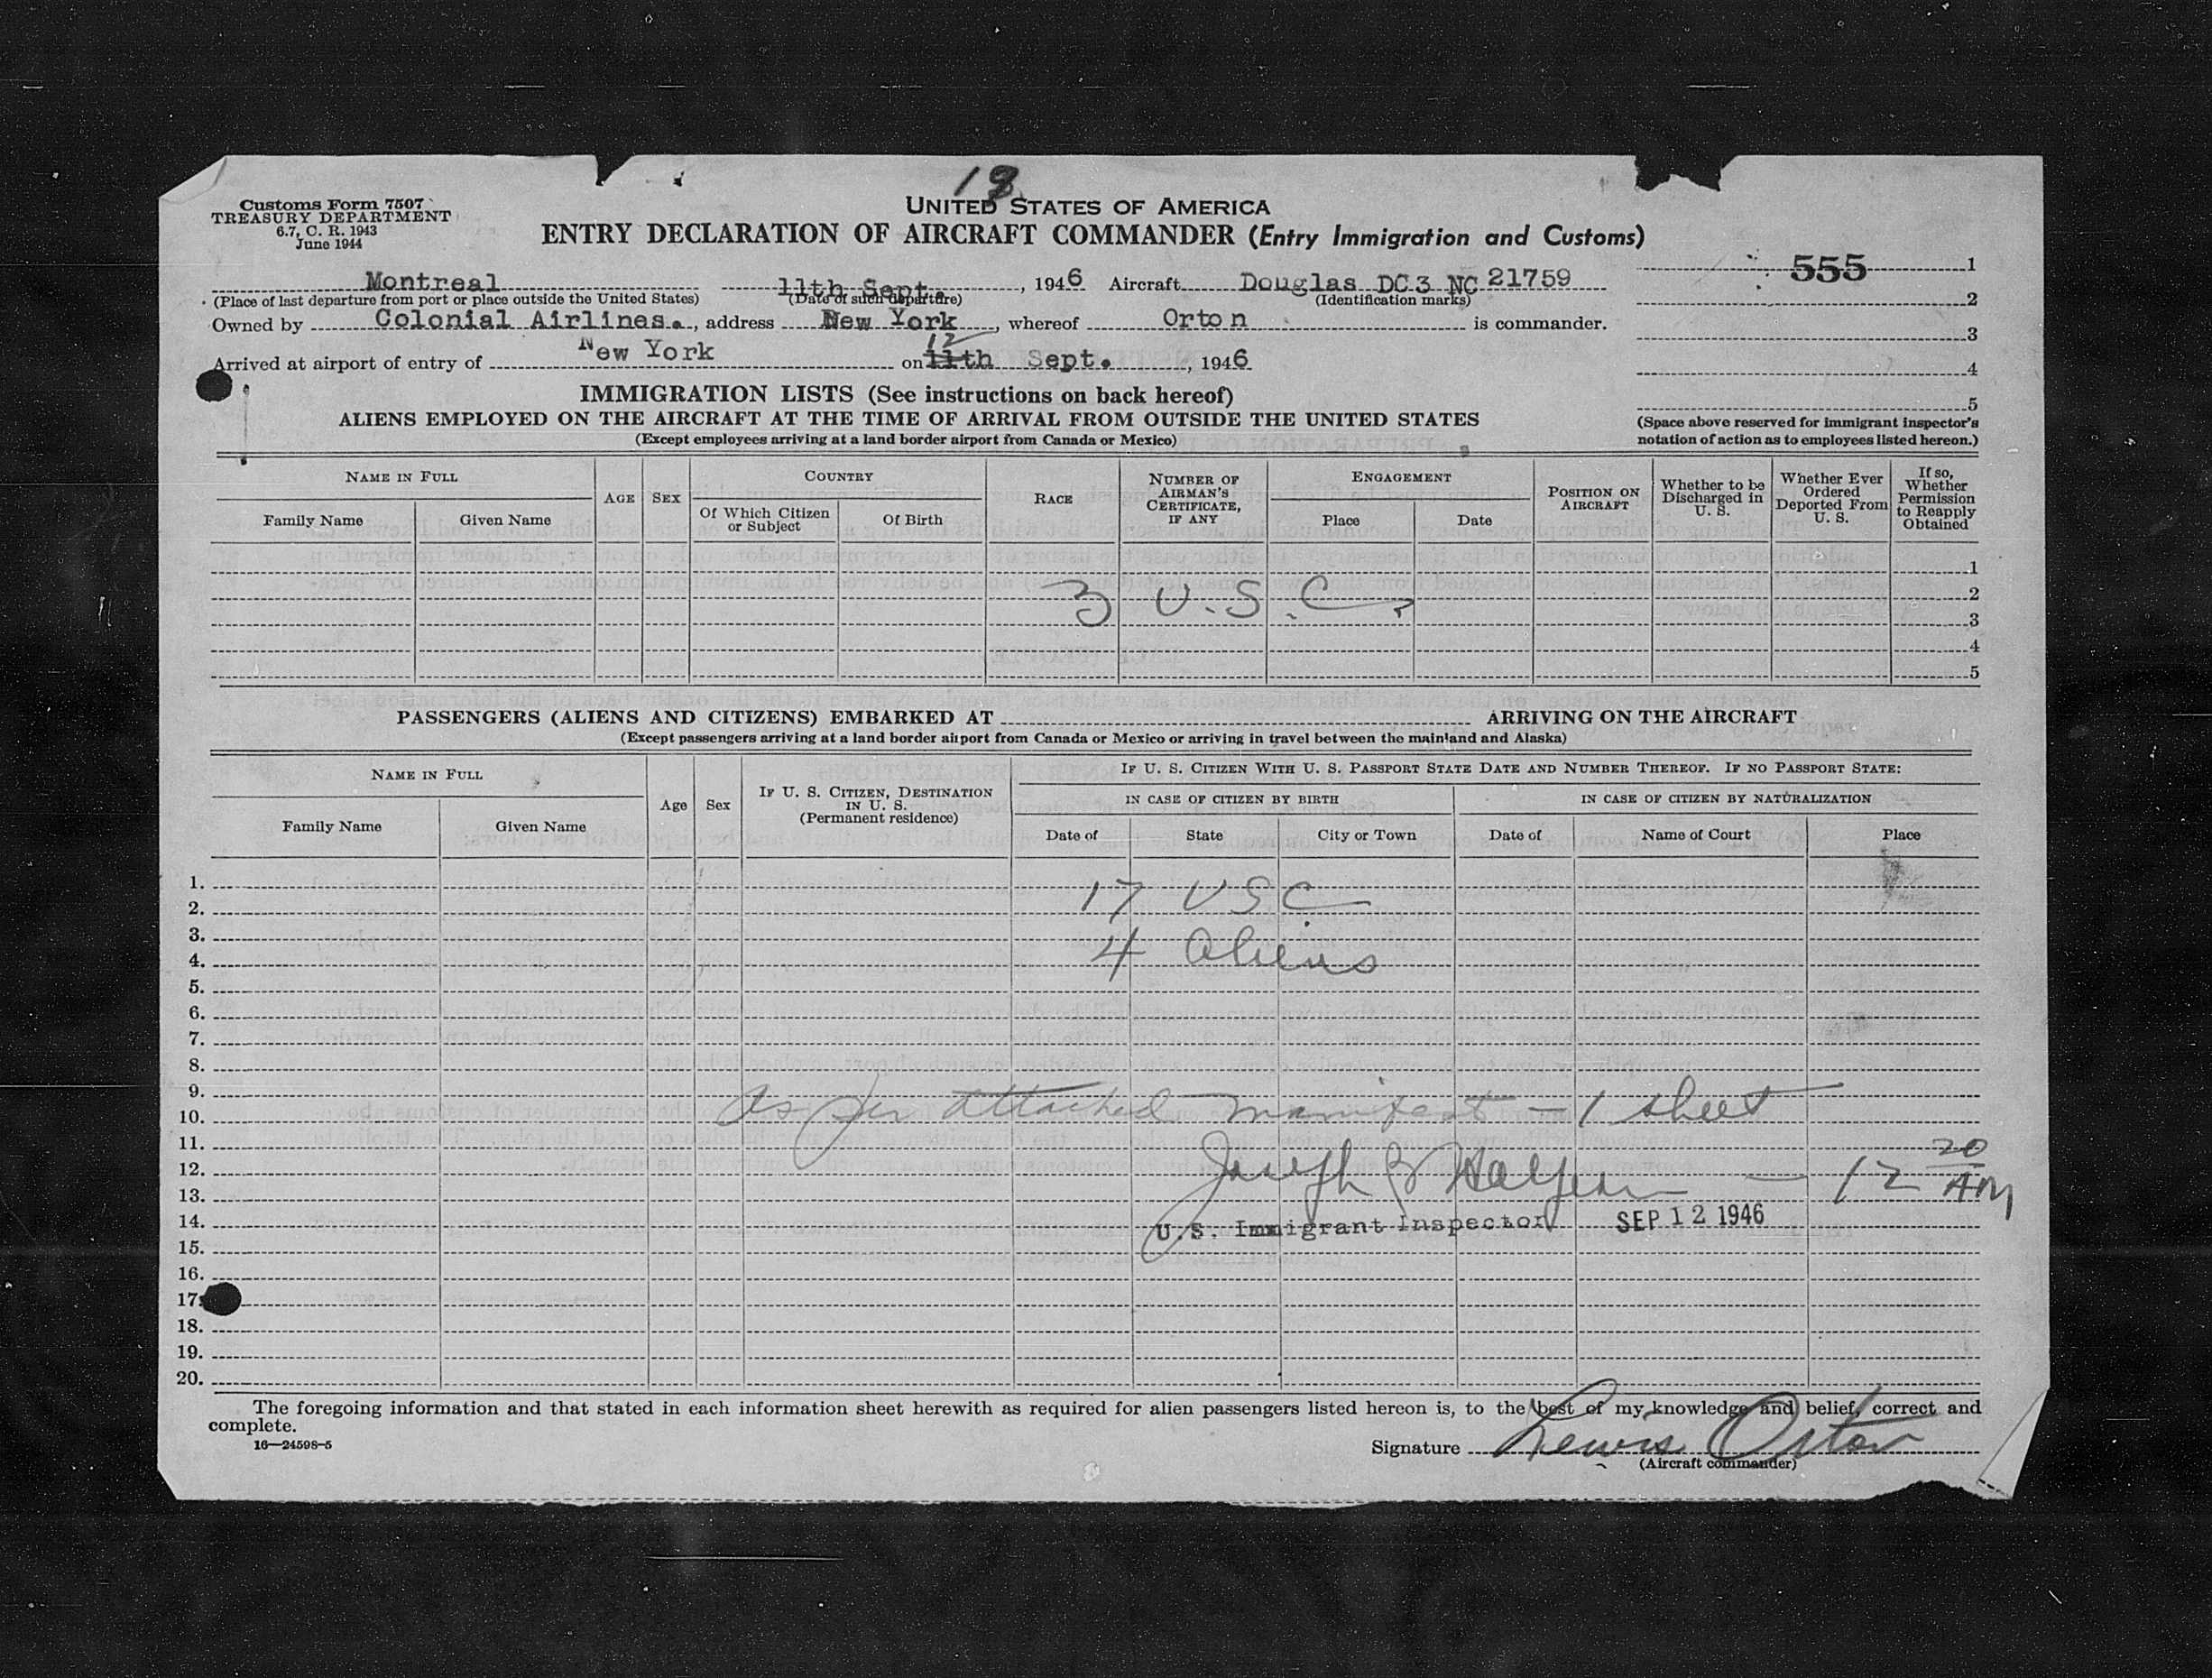 18
Customs Form 7507
TREASURY DEPARTMENT
6.7, C. R. 1943
June 1944
UNITED STATES OF AMERICA
ENTRY DECLARATION OF AIRCRAFT COMMANDER (Entry Immigration and Customs)
Montreal 11th Sept. , 1946 Aircraft Douglas DC3 NC 21759
(Place of last departure from port or place outside the United States) (Date of such departure) (Identification marks)
Owned by Colonial Airlines. , address New York , whereof Orton is commander.
12
Arrived at airport of entry of New York on 11th Sept. , 1946
555 1
2
3
4
5
(Space above reserved for immigrant inspector's
notation of action as to employees listed hereon.)
IMMIGRATION LISTS (See instructions on back hereof)
ALIENS EMPLOYED ON THE AIRCRAFT AT THE TIME OF ARRIVAL FROM OUTSIDE THE UNITED STATES
(Except employees arriving at a land border airport from Canada or Mexico)
NAME IN FULL
Family Name Given Name
AGE SEX
COUNTRY
Of Which Citizen
or Subject
Of Birth
RACE
NUMBER OF
AIRMAN'S
CERTIFICATE,
IF ANY
ENGAGEMENT
Place Date
POSITION ON
AIRCRAFT
Whether to be
Discharged in
U. S.
Whether Ever
Ordered
Deported From
U. S.
If so,
Whether
Permission
to Reapply
Obtained
1
3 U.S.C. 2
3
4
5
PASSENGERS (ALIENS AND CITIZENS) EMBARKED AT ARRIVING ON THE AIRCRAFT
(Except passengers arriving at a land border airport from Canada or Mexico or arriving in travel between the mainland and Alaska)
NAME IN FULL
Family Name Given Name
Age Sex
IF U. S. CITIZEN, DESTINATION
IN U. S.
(Permanent residence)
IF U. S. CITIZEN WITH U. S. PASSPORT STATE DATE AND NUMBER THEREOF. IF NO PASSPORT STATE:
IN CASE OF CITIZEN BY BIRTH IN CASE OF CITIZEN BY NATURALIZATION
Date of State City or Town Date of Name of Court Place
1.
2. 17 USC
3.
4. 4 Aliens
5.
6.
7.
8.
9.
10. As per attached manifest - 1 sheet
11.
12. Joseph - 12 20 AM
13.
14. U.S. Immigrant Inspector SEP 12 1946
15.
16.
17.
18.
19.
20.
The foregoing information and that stated in each information sheet herewith as required for alien passengers listed hereon is, to the best of my knowledge and belief, correct and
complete.
16—24598-5
Signature Lewis Orton
(Aircraft commander)